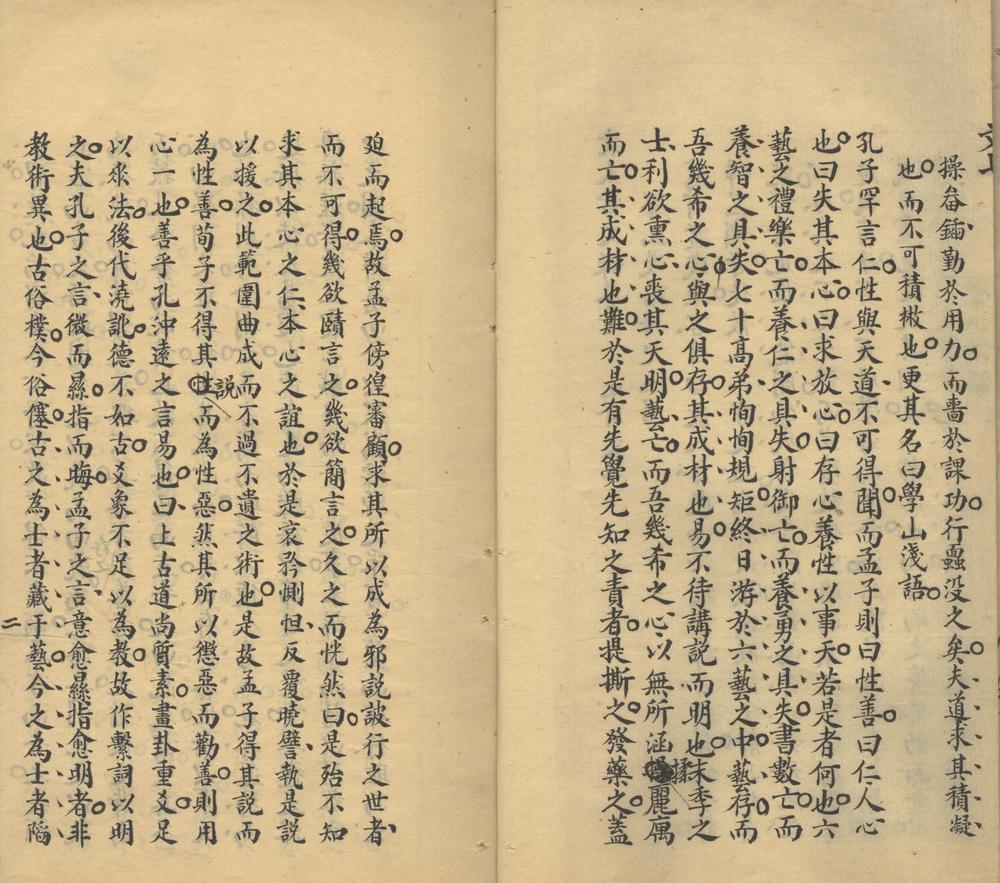 操畚鍤勤於用力而嗇於課功行蠹没之矣夫道求其積凝
也而不可積檄也更其名曰學山淺語
孔子罕言仁性與天道不可得聞而孟子則曰性善曰仁人心
也曰失其本心曰求放心曰存心養性以事天若是者何也六
藝之禮樂亡而養仁之具失射御亡而養勇之具失書數亡而
養智之具失七十高弟恂恂規矩終日游於六藝之中藝存而
吾幾希之心與之俱存其成材也易不待講説而明也末季之
士利欲熏心喪其天明藝亡而吾幾希之心以無所涵揉麗厲
而亡其成材也難於是有先覺先知之責者提撕之發藥之蓋
廹而起焉故孟子傍徨審顧求其所以成為邪説詖行之世者
而不可得幾欲賾言之幾欲簡言之久之而恍然曰是殆不知
求其本心之仁本心之誼也於是哀矜惻怛反覆曉譬執是説
以援之此範圍曲成而不過不遺之術也是故孟子得其説而
為性善荀子不得其説而為性惡然其所以懲惡而勸善則用
心一也善乎孔沖遠之言易也曰上古道尚質素畫卦重爻足
以垂法後代澆訛德不如古爻象不足以為教故作繫詞以明
之夫孔子之言微而㬎指而晦孟子之言意愈㬎指愈明者非
教術異也古俗樸今俗僿古之為士者藏于藝今之為士者陷
二